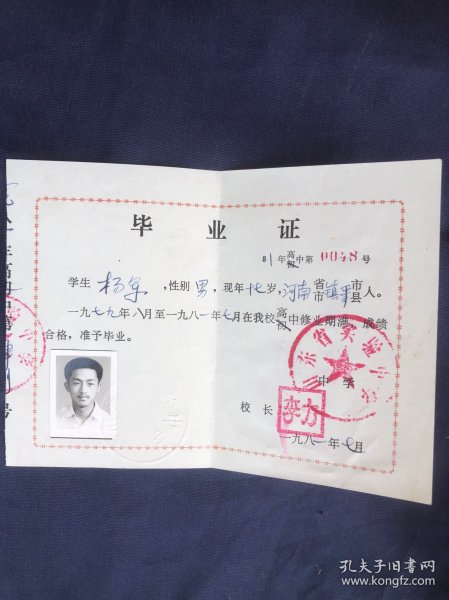 毕业证
81年高中第0048号
学生杨军,性别男,现年十七岁,河南省镇平县市人。
一九七九年八月至一九八一年七月在我校高中修业期满,成绩
合格,准予毕业。
山东省实验中学
中学
校长
李力
一九八一年七月
孔夫子旧书网
www.kongfz.com